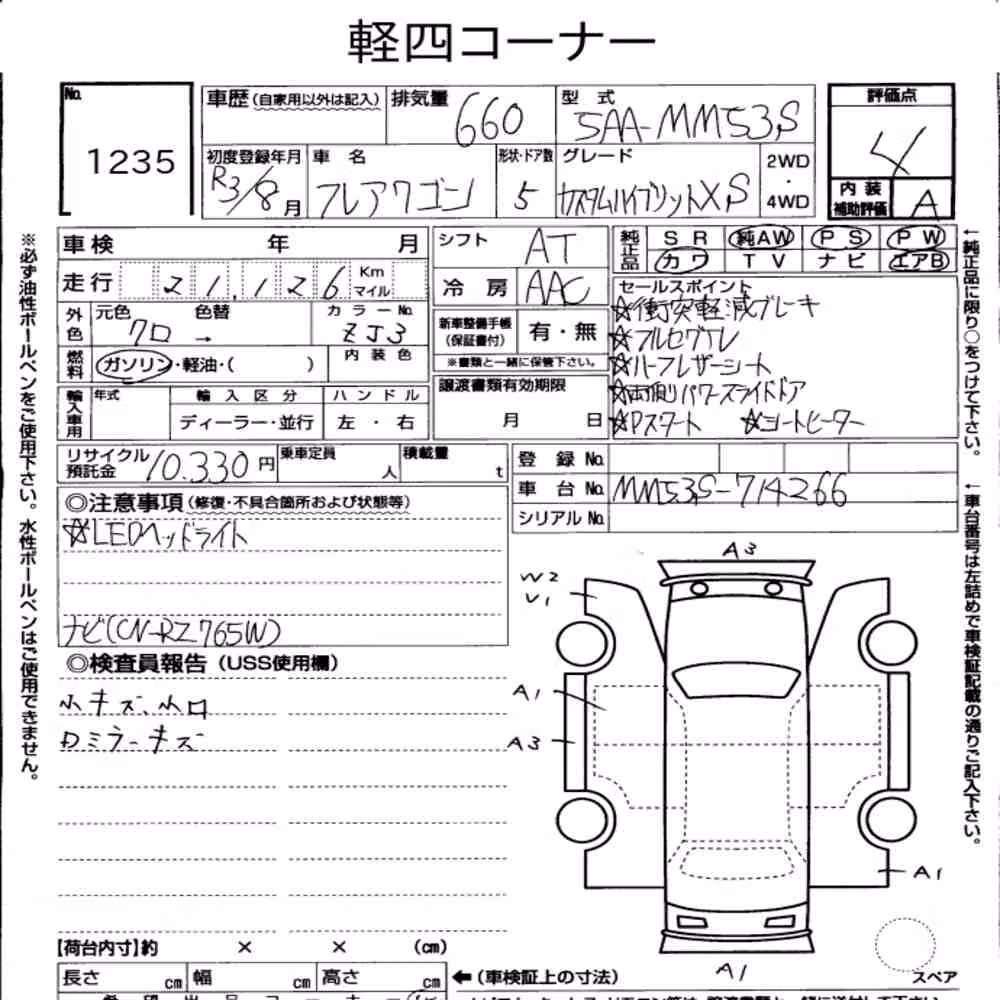 軽四コーナー
No. 1235
車歴(自家用以外は記入) 排気量 660 型式 5AA-MM53S
評価点 4
初度登録年月 R3/8月 車名 フレアワゴン 形状・ドア数 5 グレード カスタムハイブリットXS 2WD・4WD
内装補助評価 A
車検 年 月
走行 21,126 Km マイル
外色 元色 クロ 色替 → カラーNo. ZJ3
燃料 ガソリン・軽油・( ) 内装色
輸入車用 年式 輸入区分 ディーラー・並行 ハンドル 左・右
シフト AT
冷房 AAC
新車整備手帳(保証書付) 有・無
※書類と一緒に保管下さい。
譲渡書類有効期限
月 日
純正品 SR 純AW PS PW
カワ TV ナビ エアB
セールスポイント
☆衝突軽減ブレーキ
☆フルセグTV
☆ハーフレザーシート
☆両側パワースライドドア
☆Pスタート ☆シートヒーター
リサイクル預託金 10.330円 乗車定員 人 積載量 t
登録No.
車台No. MM53S-714266
シリアルNo.
◎注意事項(修復・不具合箇所および状態等)
☆LEDヘッドライト
ナビ(CN-RZ765W)
◎検査員報告(USS使用欄)
小キズ、小凹
Dミラーキズ
A3
W2
V1
A1
A3
A1
A1
スペア
【荷台内寸】約 × × (cm)
長さ cm 幅 cm 高さ cm ←(車検証上の寸法)
※必ず油性ボールペンをご使用下さい。水性ボールペンはご使用できません。
←純正品に限り○をつけて下さい。
←車台番号は左詰めで車検証記載の通りご記入下さい。